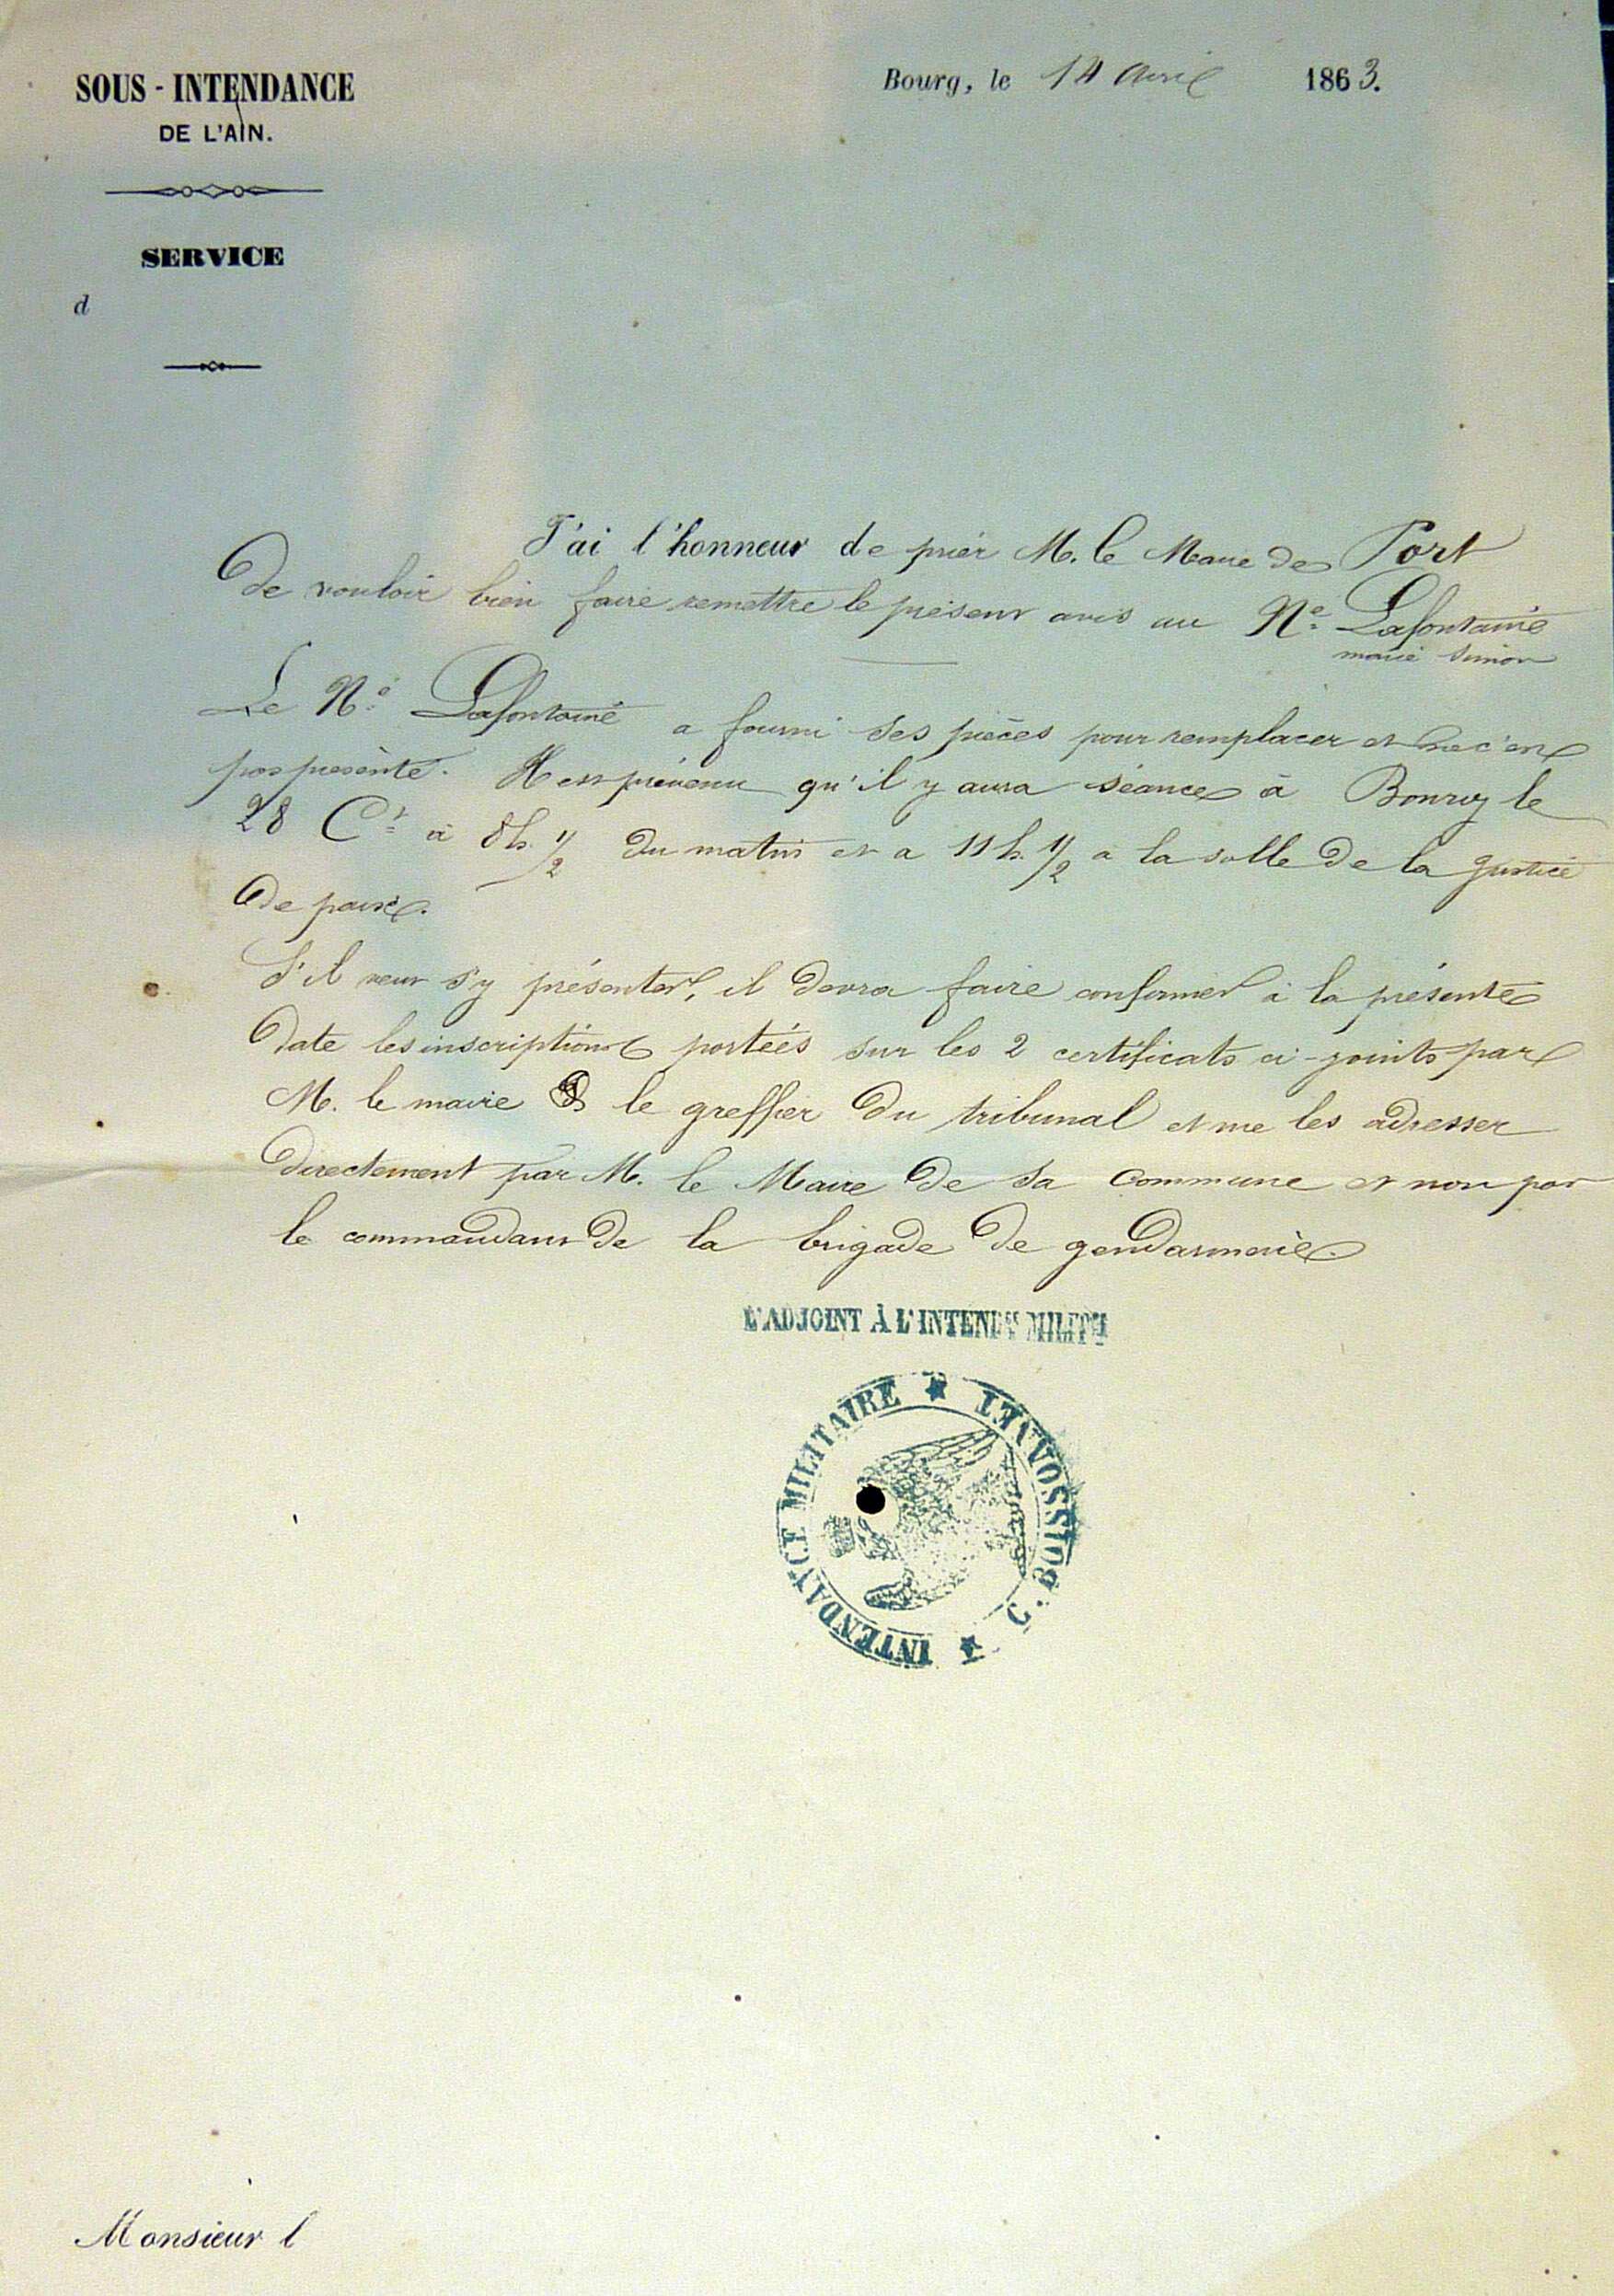 SOUS - INTENDANCE
DE L'AIN.
SERVICE
d
Bourg, le 14 avril 1863.
J'ai l'honneur de prier M. le Maire de Port
de vouloir bien faire remettre le présent avis au Né Lafontaine
marie Simon
Le Né Lafontaine a fourni ses pièces pour remplacer et ne s'en
pas présenté. Il est prévenu qu'il y aura séance à Bourg le
28 Ct à 8 h. 1/2 du matin et a 11 h. 1/2 a la salle de la justice
de paix.
S'il veut s'y présenter, il devra faire confirmer à la présente
date les inscriptions portées sur les 2 certificats ci-joints par
M. le maire & le greffier du tribunal et me les adresser
directement par M. le Maire de sa commune et non par
le commandant de la brigade de gendarmerie.
L'ADJOINT À L'INTENDce MILITre
INTENDANCE MILITAIRE ★ C. BOISSONNET ★
Monsieur l